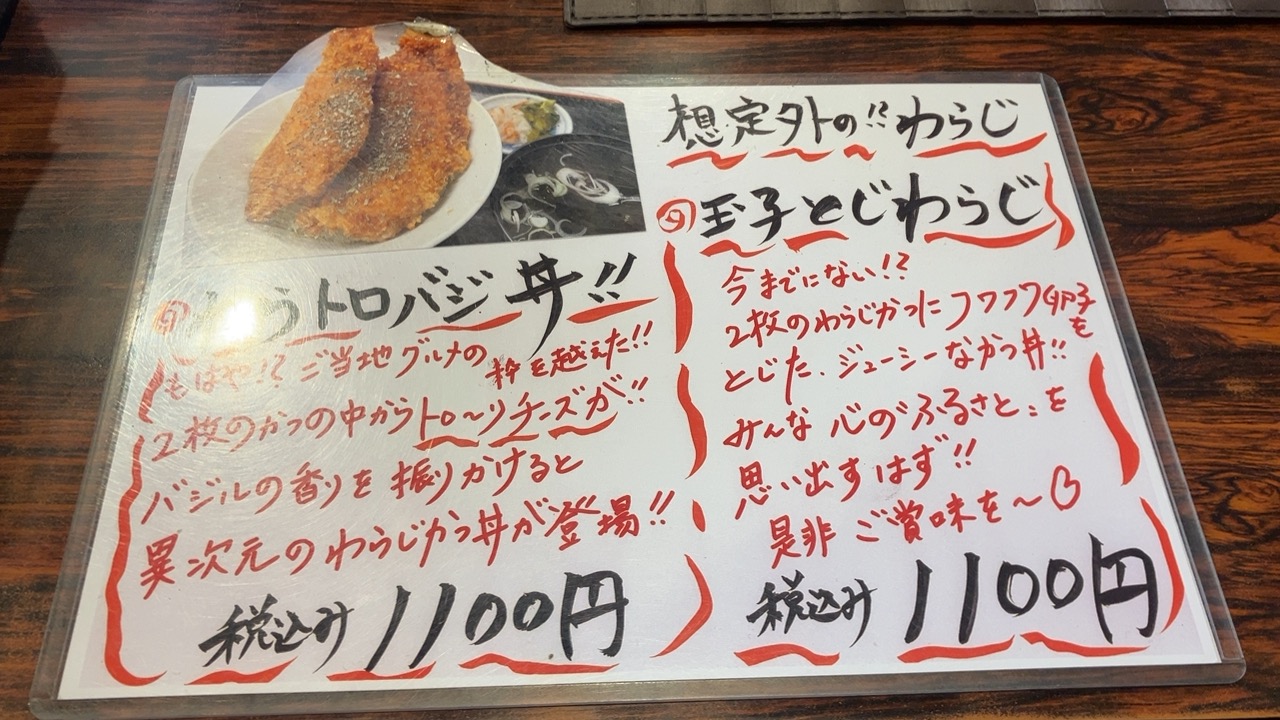 うトロバジ丼!!
もはや!? ご当地グルメの枠を越えた!!
2枚のかつの中からトロ〜リチーズが!!
バジルの香りを振りかけると
異次元のわらじかつ丼が登場!!
税込み 1100円
想定外の!? わらじ
玉子とじわらじ
今までにない!?
2枚のわらじかつにフワフワ卵子を
とじた、ジューシーなかつ丼!!
みんな 心の"ふるさと"を
思い出すはず!!
是非 ご賞味を〜
税込み 1100円